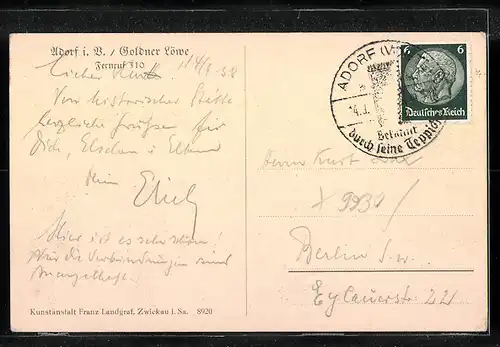 Adorf i. V. / Goldner Löwe
Fernruf 310
Lieber Kurt
Von historischer Stätte
herzliche Grüße, für
Dich, Elschen u. Eltern
Dein Erich
Hier ist es sehr schön!
Nur die Verbindungen sind
mangelhaft.
Kunstanstalt Franz Landgraf, Zwickau i. Sa. 8920
ADORF (V
Bekannt
durch seine Teppiche
6 6
Deutsches Reich
Herrn Kurt
Berlin S.W.
Eylauerstr. 22